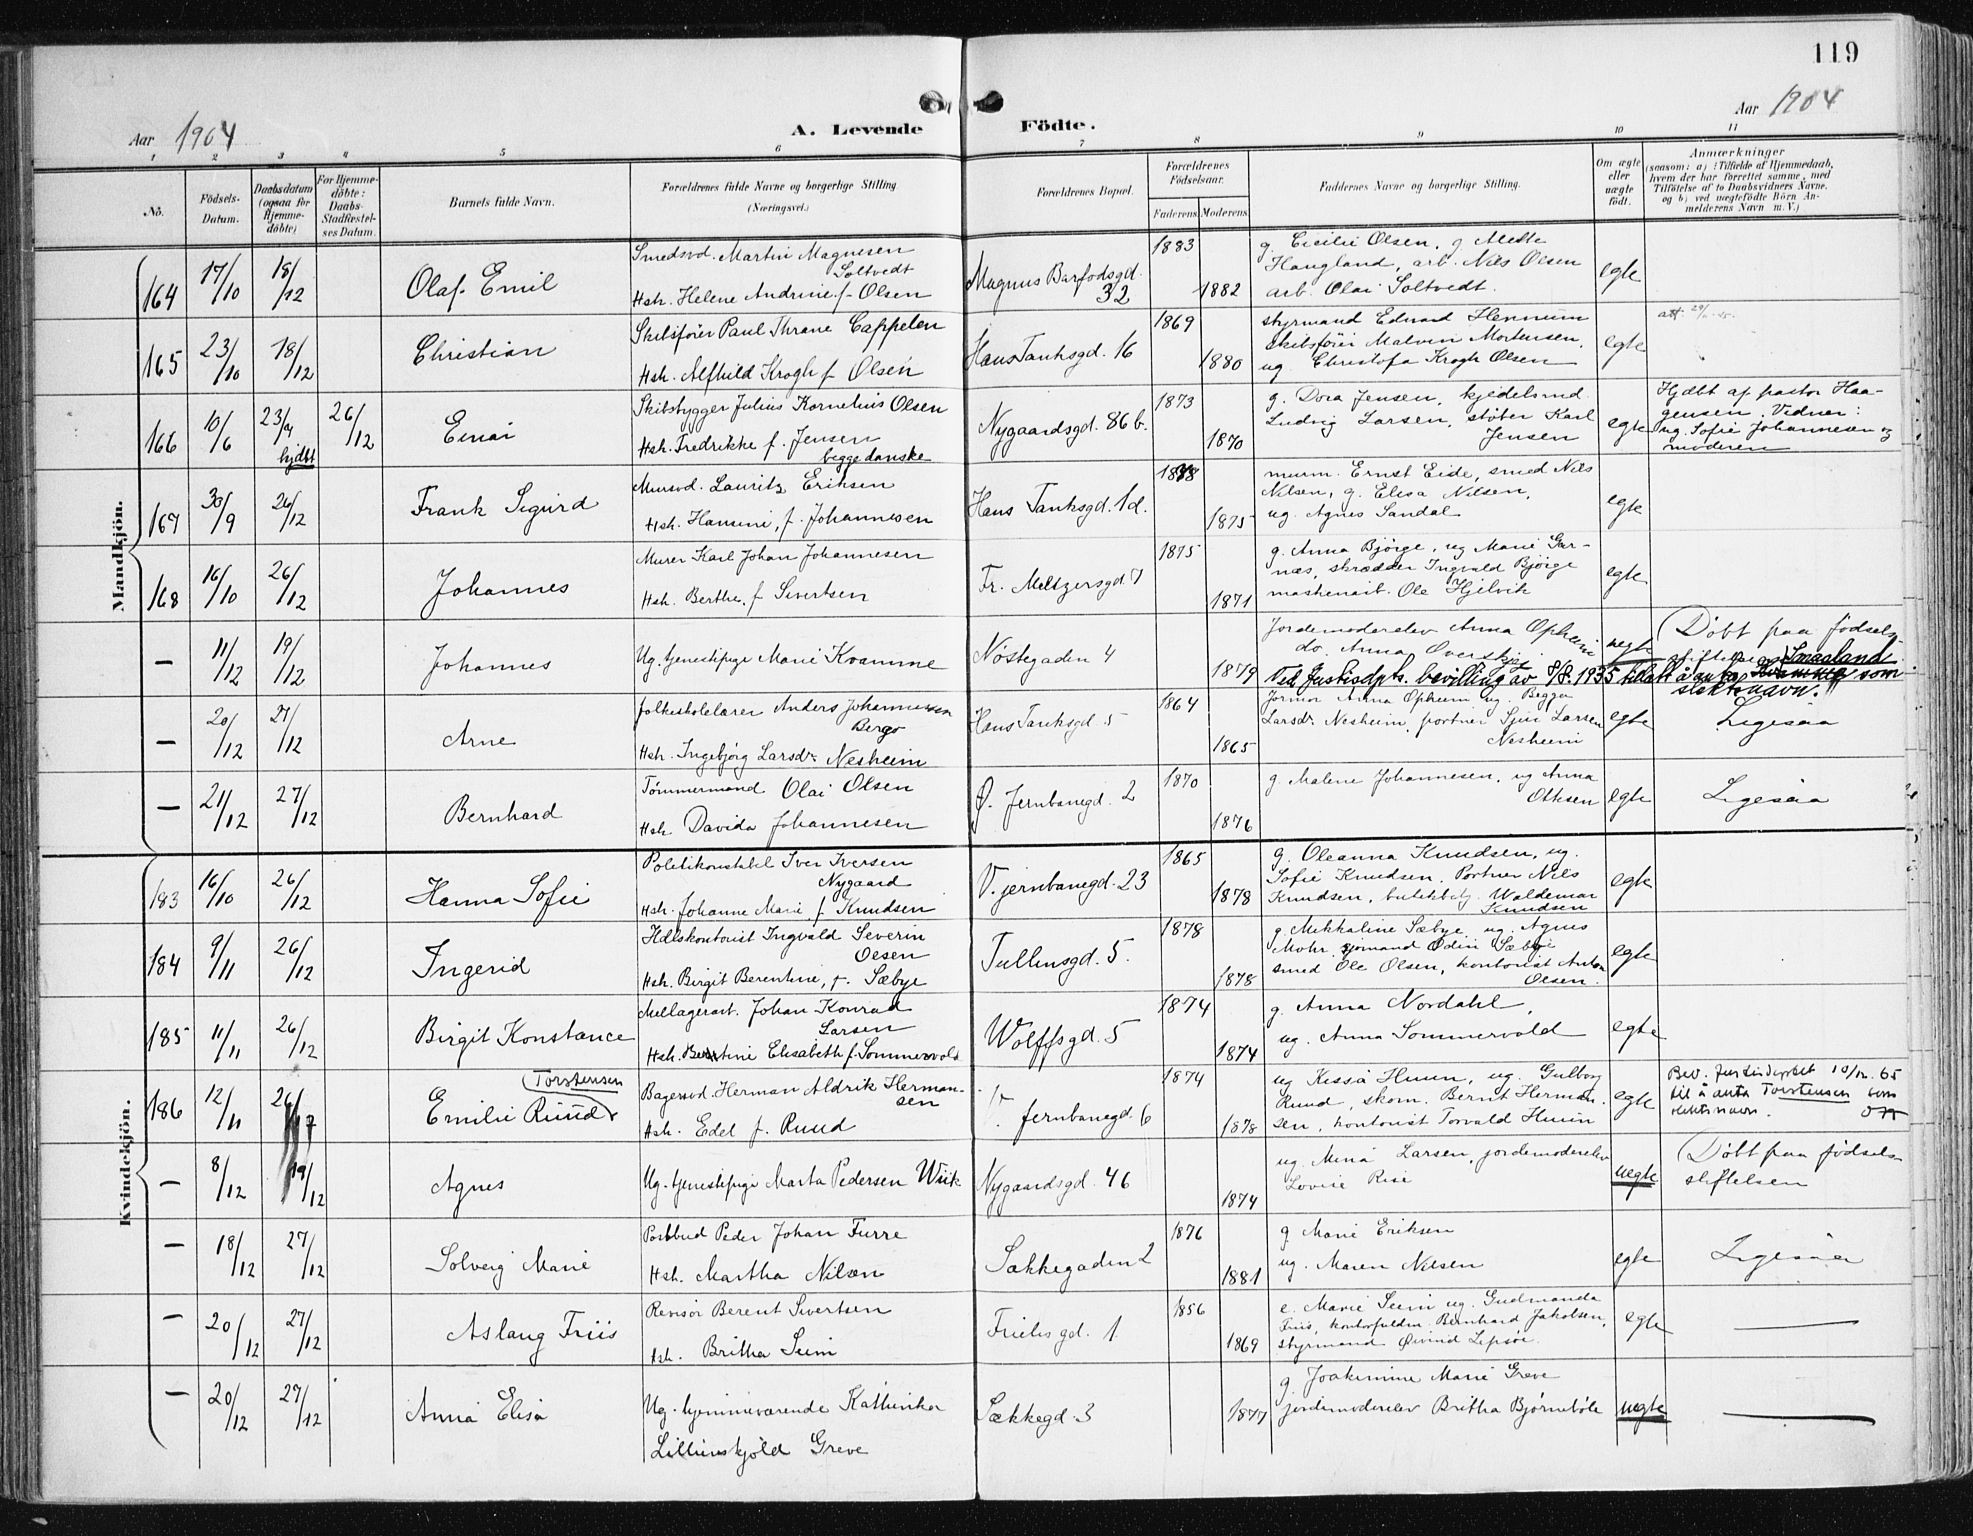 119
Aar 1904
A. Levende Födte.
Aar 1904
1 2 3 4 5 6 7 8 9 10 11
No.
Födsels-Datum.
Daabsdatum (ogsaa for Hjemme-döbte)
For Hjemme-döbte: Daabs-Stadfæstel-ses Datum.
Barnets fulde Navn.
Forældrenes fulde Navne og borgerlige Stilling (Næringsvei.)
Forældrenes Bopæl.
Forældrenes Födselsaar.
Faderens. Moderens.
Faddernes Navne og borgerlige Stilling.
Om ægte eller uægte födt.
Anmærkninger
(saasom: a) i Tilfælde af Hjemmedaab,
hvem der har forrettet samme, med
Tilföielse af to Daabsvidners Navne,
og b) ved uægtefödte Börn An-
melderens Navn m. V.)
Mandkjön.
164 17/10 18/12 Olaf Emil
Smedsvd. Martin Magnesen
Soltvedt
Hstr. Helene Andrine f. Olsen
Magnus Barfodsgd.
32
1883 1882
g. Cicilie Olsen, g Mette
Haugland, arb. Nils Olsen
arb. Olai Soltvedt.
egte
165 23/10 18/12 Christian
Skibsfører Paul Thrane Cappelen
Hstr. Alfhild Krogh f. Olsen
Hans Tanksgd. 16
1869 1880
styrmand Edvard Hennum
skibsfører Malvin Mortensen,
ug. Christofa Krogh Olsen
egte
166 10/6 23/9 hjdbt 26/12 Einar
Skibsbygger Julius Kornelius Olsen
Hstr. Fredrikke f. Jensen
begge danske
Nygaardsgd. 86 b.
1873 1870
g. Dora Jensen, kjedelsmd
Ludvig Larsen, støber Karl
Jensen
egte
Hjdbt af pastor Haa-
gensen. Vidner:
ug. Sofie Johannesen og
moderen
167 30/9 26/12 Frank Sigurd
Mursvd. Lauritz Eriksen
Hstr. Hamine, f. Johannesen
Hans Tanksgd. 1d.
1875
murm. Ernst Eide, smed Nils
Nilsen, g. Elisa Nilsen,
ug. Agnes Sandal
egte
168 16/10 26/12 Johannes
Murer Karl Johan Johannesen
Hstr. Berthe, f Sivertsen
Fr. Meltzersgd. 7
1875 1871
g. Anna Bjørge, ug Marie Gar-
næs, skrædder Ingvald Bjørge
maskinarb. Ole Hjelvik
egte
— 11/12 19/12 Johannes
Ug. tjenestepige Marie Kvamme
Nøstegaden 4
1879
Jordemoderelev Anna Opheim
do. Anna
uegte
Døbt paa fødsels-
stiftelsen
Ved Justisdpts. bevilling av 8/8.1935 tillatt å anta Smaaland som
slektsnavn.
— 20/12 27/12 Arne
folkeskolelærer Anders Johannessen
Berge
Hstr. Ingebjørg Larsdr. Nesheim
Hans Tanksgd. 5
1864 1865
Jormor Anna Opheim ug.
Larsdr. Nesheim, portner Sjur Larsen
Nesheim
egte
Ligesaa
— 21/12 27/12 Bernhard
Tømmermand Olai Olsen
Hstr. Davida Johannesen
Ø. Jernbanegd. 2
1870 1876
g. Malene Johannesen, ug Anna
egte
Ligesaa
Kvindekjön.
183 16/10 26/12 Hanna Sofie
Politikonstabel Iver Iversen
Nygaard
Hstr. Johanne Marie, f Knudsen
V. jernbanegd. 23
1865 1878
g. Oleanna Knudsen, ug.
Sofie Knudsen. Portner Nils
Knudsen, butikbetj. Waldemar
Knudsen
egte
184 9/11 26/12 Ingerid
Hdlskontorist Ingvald Severin
Olsen
Hstr. Birgit Berentine, f. Sæbye
Tullinsgd. 5.
1878 1878
g. Mekkaline Sæbye, ug. Agnes
Mohr, sjømand Odin Sæbye
smed Ole Olsen, kontorist Anton
Olsen.
egte
185 11/11 26/12 Birgit Konstance
Mellagerarb. Johan Konrad
Larsen
Hstr. Elisabeth f. Sommervold
Wolffsgd. 5
1874 1874
g. Anna Nordahl,
ug. Anna Sommervold
egte
186 12/11 26/12 Emilie Ruud Torstensen
Bagersvd. Herman Aldrik Herman-
sen
Hstr. Edel f. Ruud
V. jernbanegd. 6
1874 1878
ug Kessa Huun, ug. Gulborg
Ruud, skom. Bernt Herman-
sen, kontorist Torvald Huun
egte
Bev. Justisdeptet 10/12. 65
til å anta Torstensen som
slektsnavn.
— 8/12 19/12 Agnes
Ug. tjenestepige Marta Pedersen Wiik
Nygaardsgd. 46
1874
ug. Mina Larsen, jordemoderelev
Lovise Rise
uegte
Døbt paa fødsels-
stiftelsen
— 18/12 27/12 Solveig Marie
Postbud Peder Johan Furre
Hstr. Martha Nilsen
Sækkegaden 2
1876 1881
g Marie Eriksen
ug. Maren Nilsen
egte
Ligesaa
— 20/12 27/12 Aslaug Friis
Revisor Berent Sivertsen
Hstr. Britha Seim
Frielesgd. 1
1856 1869
e. Marie Seim ug. Gudmanda
Friis, kontorfuldm. Bernhard Jakobsen,
styrmand Øivind Lepsøe.
egte
— 20/12 27/12 Anna Elisa
Ug. hjemmeværende Kathinka
Lillienskjöld Greve
Sækkegd. 3
1877
g. Joakimine Marie Greve
jordemoderelev Britha Bjørnebøle
uegte